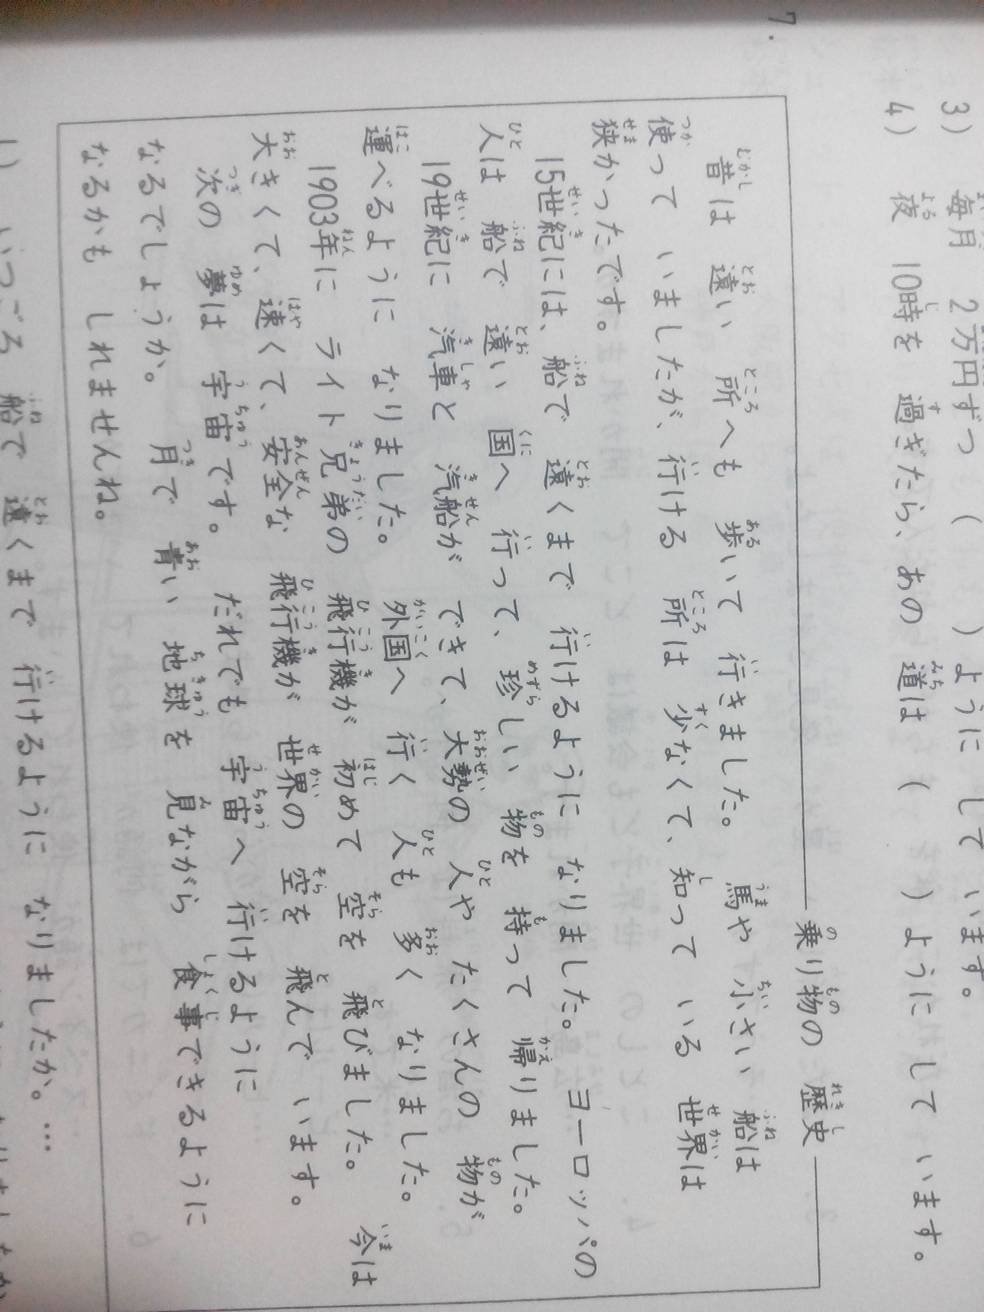 3) 毎月 2万円ずつ ( ) ように して います。
4) 夜 10時を 過ぎたら、あの 道は ( ) ように して います。
7.
乗り物の 歴史
昔は 遠い 所へも 歩いて 行きました。 馬や 小さい 船は
使って いましたが、行ける 所は 少なくて、知って いる 世界は
狭かったです。
15世紀には、船で 遠くまで 行けるように なりました。ヨーロッパの
人は 船で 遠い 国へ 行って、珍しい 物を 持って 帰りました。
19世紀に 汽車と 汽船が できて、大勢の 人や たくさんの 物が
運べるように なりました。外国へ 行く 人も 多く なりました。
1903年に ライト 兄弟の 飛行機が 初めて 空を 飛びました。 今は
大きくて、速くて、安全な 飛行機が 世界の 空を 飛んで います。
次の 夢は 宇宙です。 だれでも 宇宙へ 行けるように
なるでしょうか。 月で 青い 地球を 見ながら 食事できるように
なるかも しれませんね。
1) いつごろ 船で 遠くまで 行けるように なりましたか。…